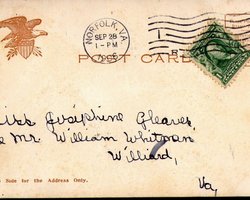 NORFOLK, VA.
SEP 28
1-PM
POST CARD
Miss Josephine Gleaves
Mr. William Whitman,
Williard,
Va,
Side for the Address Only.